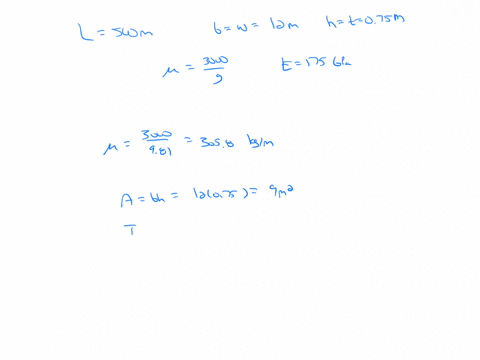 L = 500m b = w = 12m h = t = 0.75m
μ = 3000/g E = 175 GPa
μ = 3000/9.81 = 305.8 kg/m
A = bh = 12(0.75) = 9m²
I